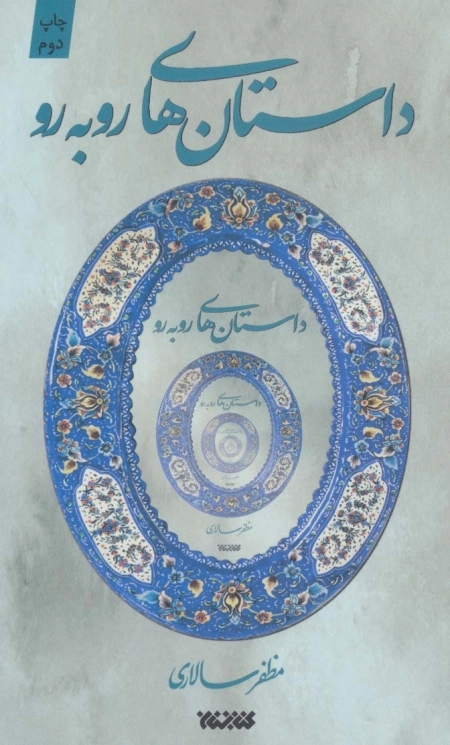 چاپ
دوم
داستان‌های روبه‌رو
داستان‌های روبه‌رو
داستان‌های روبه‌رو
مظفر سالاری
مظفر سالاری